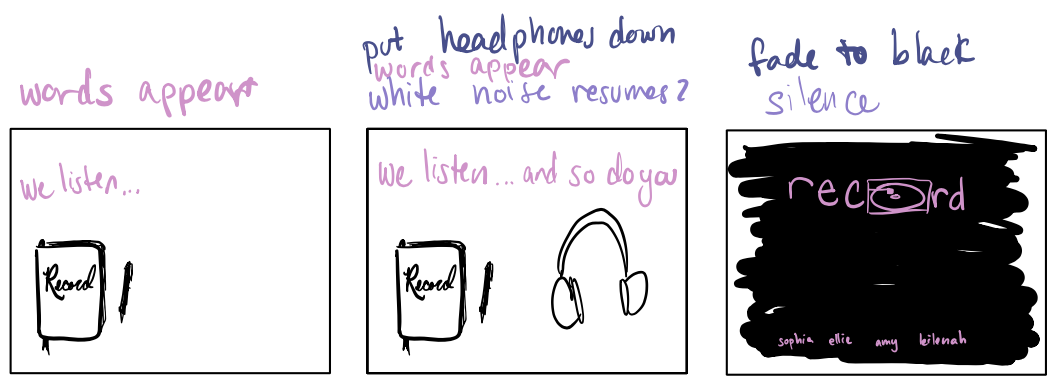 words appear
we listen...
Record
put headphones down
words appear
white noise resumes?
we listen... and so do you
Record
fade to black
silence
record
sophia ellie amy leilenah